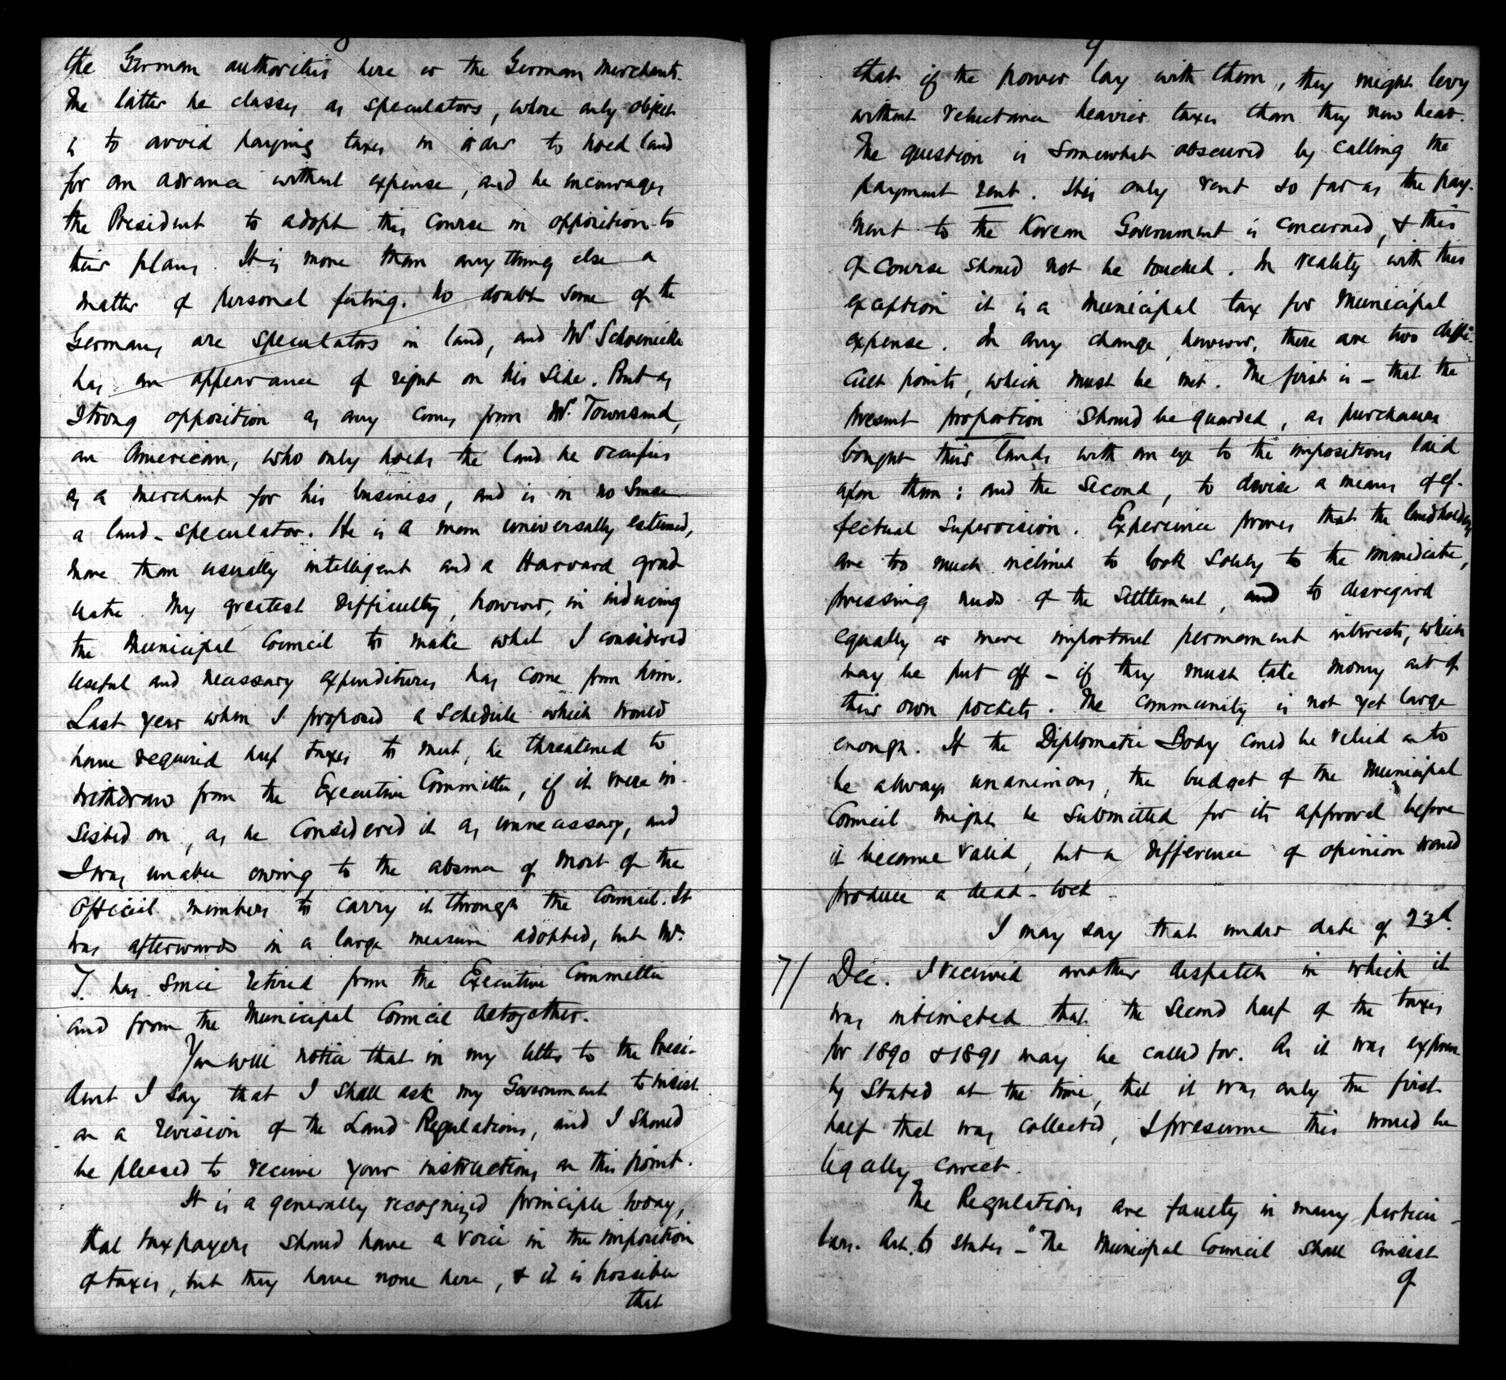 8
the German authorities here or the German merchants.
The latter he classes as speculators, whose only object
is to avoid paying taxes in order to hold land
for an advance without expense, and he encourages
the President to adopt this course in opposition to
their plans. It is more than any thing else a
matter of personal feeling. No doubt some of the
Germans are speculators in land, and Mr Schoenicke
has an appearance of right on his side. But as
strong opposition as any comes from Mr. Townsend,
an American, who only holds the land he occupies
as a merchant for his business, and is in no sense
a land-speculator. He is a man universally esteemed,
more than usually intelligent and a Harvard grad
uate. My greatest difficulty, however, in inducing
the Municipal Council to make what I considered
useful and necessary expenditures has come from him.
Last year when I proposed a schedule which would
have required half taxes to meet, he threatened to
withdraw from the Executive Committee, if it were in-
sisted on, as he considered it as unnecessary, and
I was unable owing to the absence of most of the
official members to carry it through the Council. It
was afterwards in a large measure adopted, but Mr.
T. has since retired from the Executive Committee
and from the Municipal Council altogether.
You will notice that in my letter to the Presi-
dent I say that I shall ask my Government to insist
on a revision of the Land Regulations, and I should
be pleased to receive your instructions on this point.
It is a generally recognized principle today,
that taxpayers should have a voice in the imposition
of taxes, but they have none here, & it is possible
that
9
that if the power lay with them, they might levy
without reluctance heavier taxes than they now bear.
The question is somewhat obscured by calling the
payment rent. It is only rent so far as the pay-
ment to the Korean Government is concerned, & this
of course should not be touched. In reality with this
exception it is a municipal tax for municipal
expense. In any change, however, there are two diffi-
cult points, which must be met. The first is - that the
present proportion should be guarded, as purchasers
bought their lands with an eye to the impositions laid
upon them: and the second, to devise a means of ef-
fectual supervision. Experience proves that the landholders
are too much inclined to look solely to the immediate,
pressing needs of the Settlement, and to disregard
equally or more important permanent interests, which
may be put off - if they must take money out of
their own pockets. The community is not yet large
enough. If the Diplomatic Body could be relied on to
be always unanimous, the budget of the Municipal
Council might be submitted for its approval before
it become valid, but a difference of opinion would
produce a dead-lock.
I may say that under date of 23d.
7/ Dec. I received another dispatch in which it
was intimated that the second half of the taxes
for 1890 & 1891 may be called for. As it was express
ly stated at the time, that it was only the first
half that was collected, I presume this would be
legally correct.
The Regulations are faulty in many particu-
lars. Art. 6 states - "The Municipal Council shall consist
of